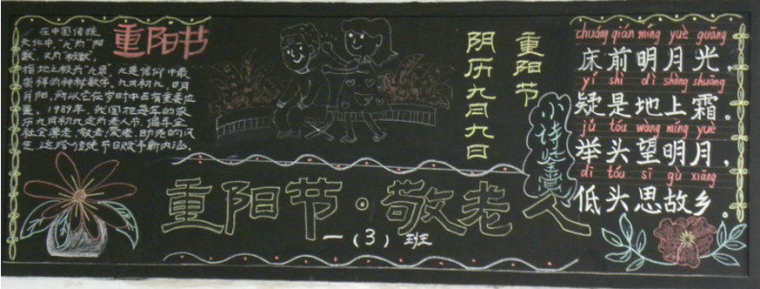 重阳节
在中国传统
文化中"九"为"阳
数，又为"极数，
九是信仰中最
崇拜的神秘数字. 九月初九，
所以它在 中占有重要位
置. 1989年，我国把每年的农
历九月初九定为老人节，倡导全
社会尊老、敬老、爱老、助老的风
气. 这给传统节日赋予新内涵.
重阳节
阴历九月九日
小诗鉴赏
chuáng qián míng yuè guāng
床前明月光，
yí shì dì shàng shuāng
疑是地上霜。
jǔ tóu wàng míng yuè
举头望明月，
dī tóu sī gù xiāng
低头思故乡。
重阳节·敬老人
一（3）班